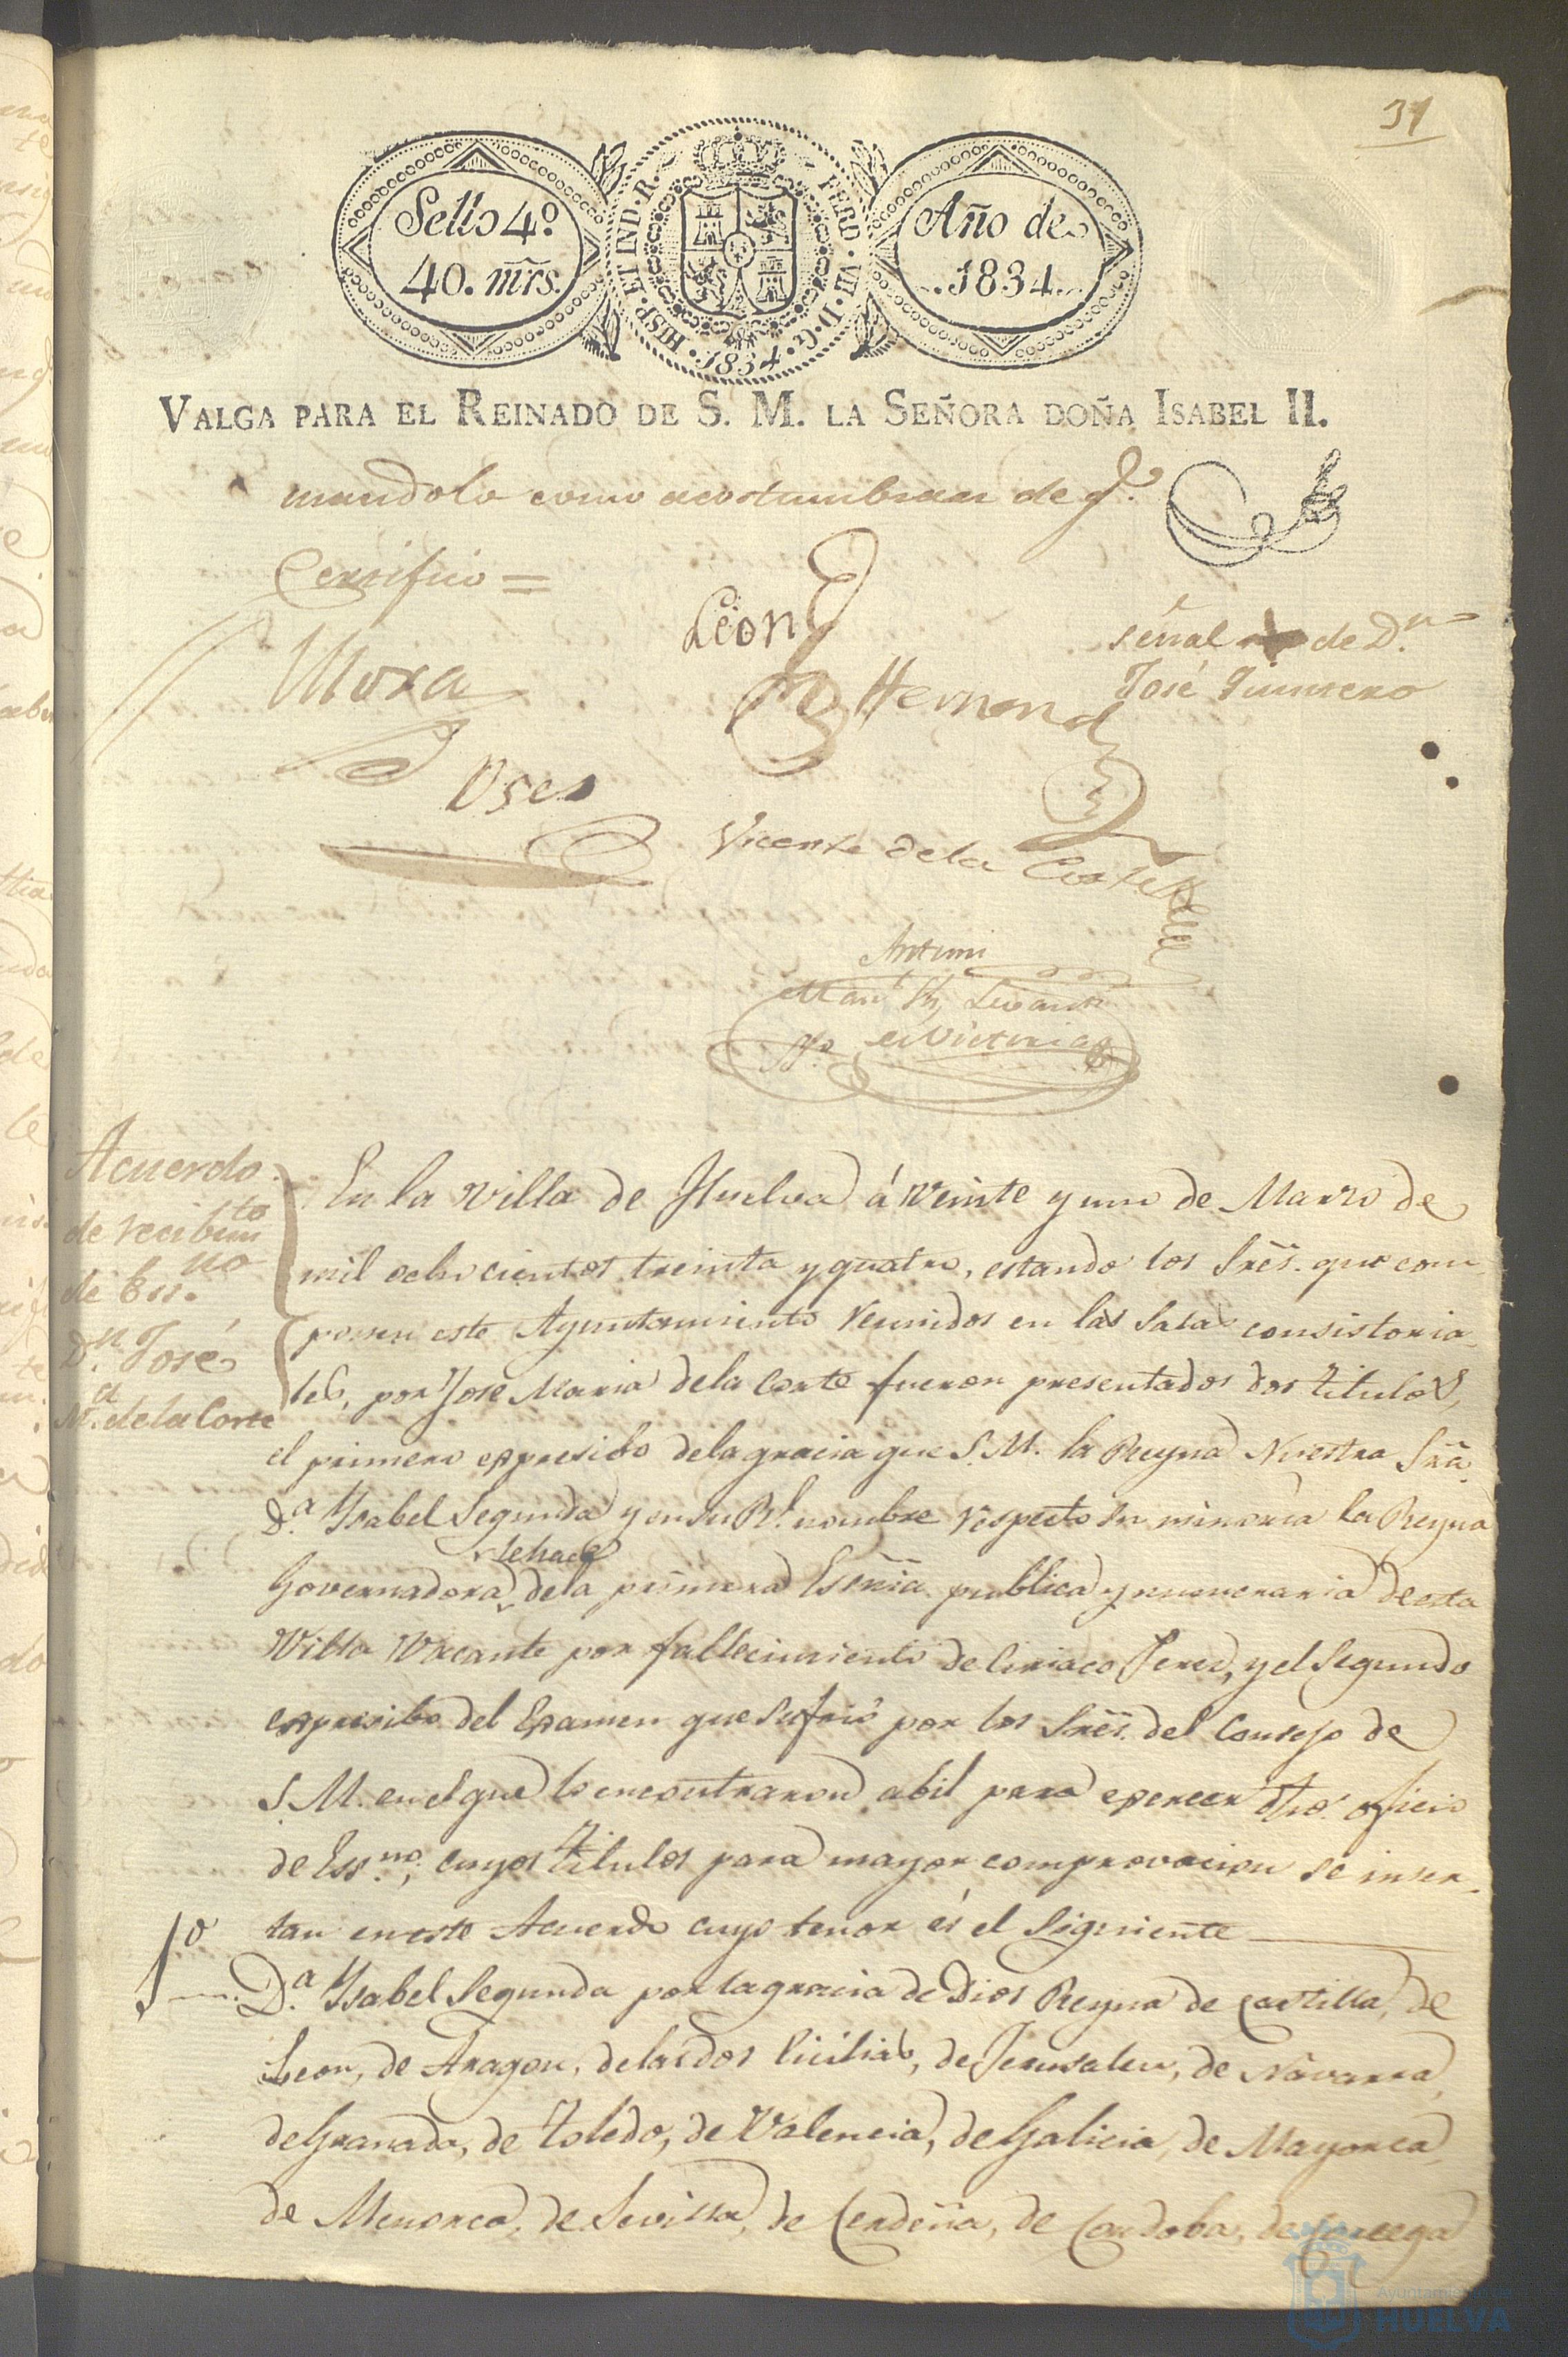 31
Sello 4º.
40. mrs.
HISP. ET IND. R.
FERD. VII. D. G.
1834
Año de
1834
VALGA PARA EL REINADO DE S. M. LA SEÑORA DOÑA ISABEL II.
mandolo como acostumbran de q.e
Certifico =
Mora
Leon
señal de D.n
José Quintero
Hernand
Oses
Vicente de la Corte
Antemi
Man.l
Acuerdo
de recibim.to
de Ess.no
D.n José
M.a de la Corte
En la Villa de Huelva á Veinte y uno de Marzo de
mil ochocientos treinta y quatro, estando los Sres. que com-
ponen este Ayuntamiento reunidos en las Salas consistoria-
les, por Jose Maria de la Corte fueron presentados dos titulos,
el primero expresibo de la gracia que S. M. la Reyna Nuestra Sra.
D.a Ysabel Segunda y en su Rl. nombre respecto su minoria la Reyna
Governadora le hace de la primera Esnia. publica y numeraria de esta
Villa Vacante por fallecimiento de Ciriaco Jerez, y el Segundo
expresibo del Examen que sufrió por los Sres. del Consejo de
S. M. en el que lo encontraron abil para exercer dho. oficio
de Ess.no, cuyos titulos para mayor comprovacion se inser-
tan en este Acuerdo cuyo tenor és el Siguiente
1º
D.a Ysabel Segunda por la gracia de Dios Reyna de Castilla, de
Leon, de Aragon, de las dos Cicilias, de Jerusalen, de Navarra,
de Granada, de Toledo, de Valencia, de Galicia, de Mayorca,
de Menorca, de Sevilla, de Cerdeña, de Cordoba, de Corcega
Ayuntamiento de
HUELVA